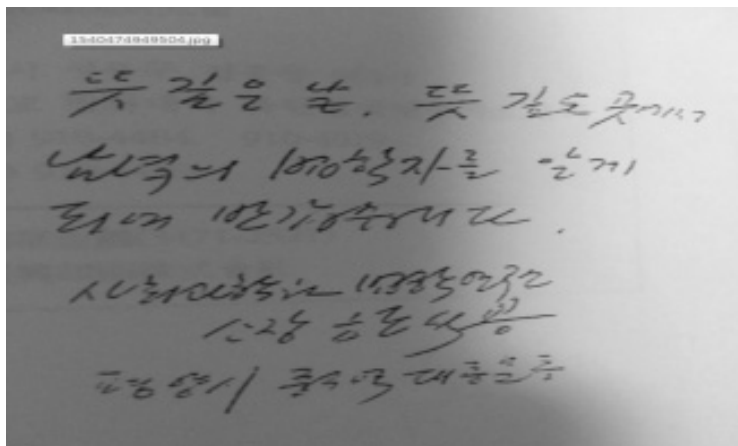 1540474949504.jpg
뜻 깊은 날. 뜻 깊은 곳에서
남녘의 법학자를 알게
되여 반갑습니다.
사회과학원 법학연구소
소장
평양시 중구역 대동문동